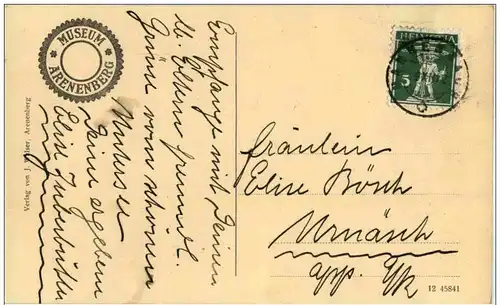 MUSEUM
ARENENBERG
Verlag von J. Arenenberg
Empfange mit Deinen
lb. Eltern freundl.
Grüsse vom schönen
Untersee
Deine ergebene
Elise
HELVETIA
5
Fräulein
Elise Bösch
Urnäsch
App.
12 45841